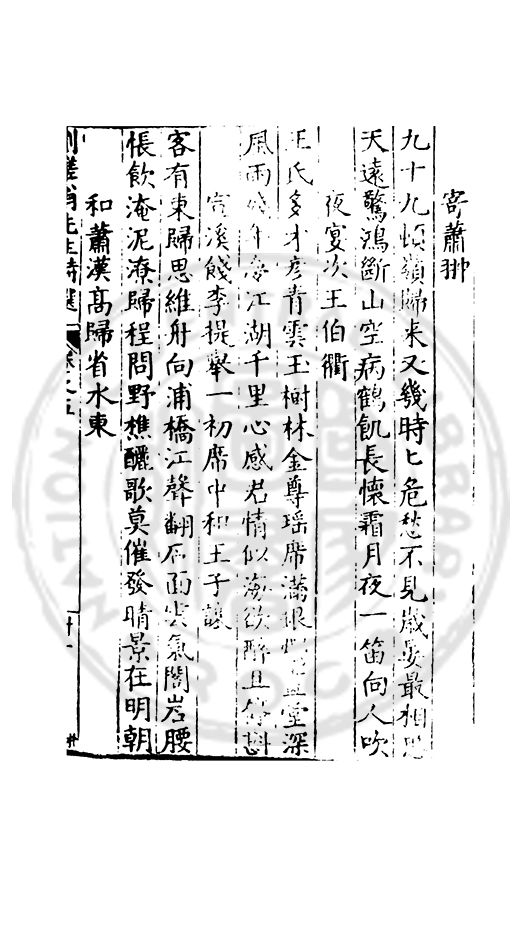 寄蕭翀
九十九頓嶺歸来又幾時匕危愁不見歲晏最相思
天遠驚鴻斷山空病鶴飢長懷霜月夜一笛向人吹
夜宴次王伯衢
王氏多才彦青雲玉樹林金尊瑶席滿銀燭堂深
風雨年江湖千里心感君情似海欲醉且斟
溪餞李提舉一初席中和王子讓
客有東歸思維舟向浦橋江聲翻石面氣閣岩腰
悵飲淹泥潦歸程問野樵驪歌莫催發晴景在明朝
和蕭漢高歸省水東
劉槎翁先生詩選 卷之五 十一